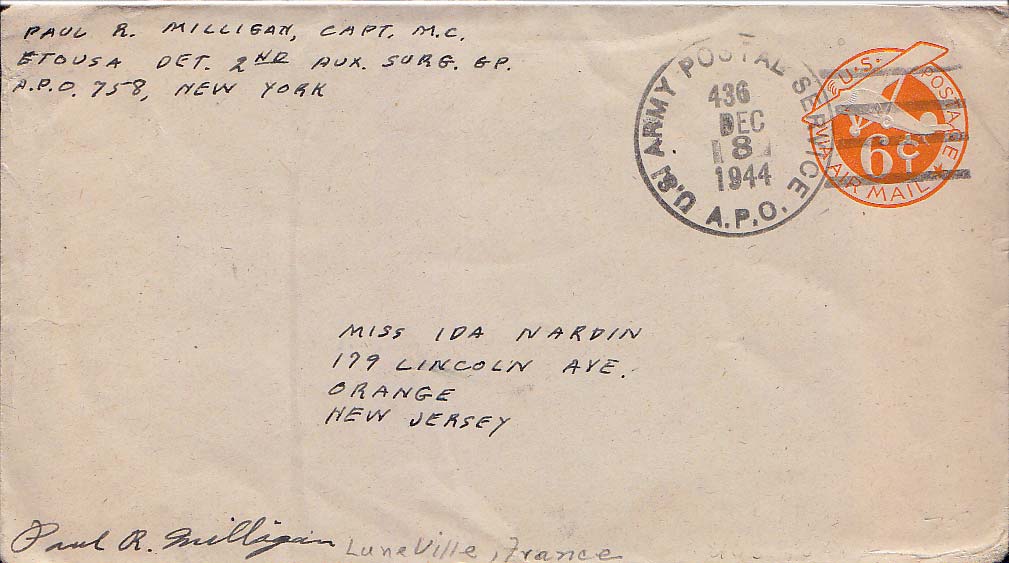 PAUL R. MILLIGAN, CAPT. M.C.
ETOUSA DET. 2ND AUX. SURG. GP.
A.P.O. 758, NEW YORK
U.S. ARMY POSTAL SERVICE
436
DEC
8
1944
A.P.O.
U.S. POSTAGE
6¢
VIA AIR MAIL
MISS IDA NARDIN
179 LINCOLN AVE.
ORANGE
NEW JERSEY
Paul R. Milligan Luneville, France